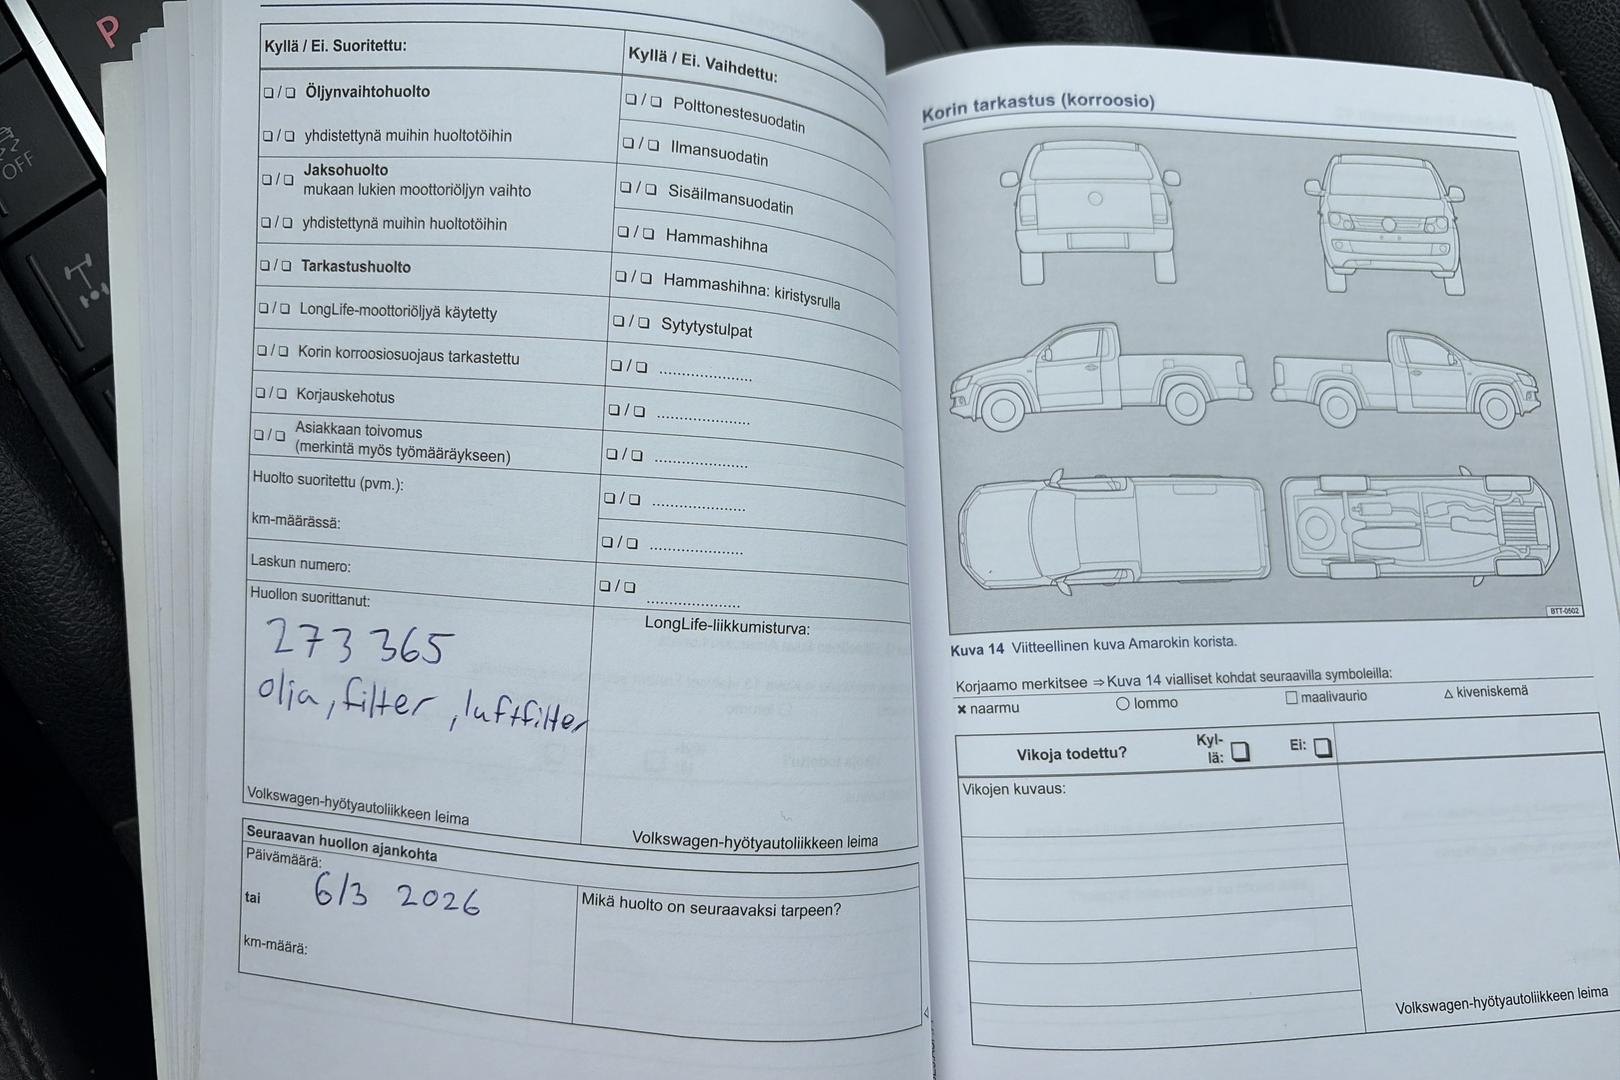 P
OFF
Kyllä / Ei. Suoritettu:
❏ / ❏ Öljynvaihtohuolto
❏ / ❏ yhdistettynä muihin huoltotöihin
❏ / ❏ Jaksohuolto
mukaan lukien moottoriöljyn vaihto
❏ / ❏ yhdistettynä muihin huoltotöihin
❏ / ❏ Tarkastushuolto
❏ / ❏ LongLife-moottoriöljyä käytetty
❏ / ❏ Korin korroosiosuojaus tarkastettu
❏ / ❏ Korjauskehotus
❏ / ❏ Asiakkaan toivomus
(merkintä myös työmääräykseen)
Huolto suoritettu (pvm.):
km-määrässä:
Laskun numero:
Huollon suorittanut:
273 365
olja, filter, luftfilter
Volkswagen-hyötyautoliikkeen leima
Kyllä / Ei. Vaihdettu:
❏ / ❏ Polttonestesuodatin
❏ / ❏ Ilmansuodatin
❏ / ❏ Sisäilmansuodatin
❏ / ❏ Hammashihna
❏ / ❏ Hammashihna: kiristysrulla
❏ / ❏ Sytytystulpat
❏ / ❏ .....................
❏ / ❏ .....................
❏ / ❏ .....................
❏ / ❏ .....................
❏ / ❏ .....................
❏ / ❏ .....................
LongLife-liikkumisturva:
Volkswagen-hyötyautoliikkeen leima
Seuraavan huollon ajankohta
Päivämäärä:
6/3 2026
tai
km-määrä:
Mikä huolto on seuraavaksi tarpeen?
Korin tarkastus (korroosio)
BTT-0502
Kuva 14 Viitteellinen kuva Amarokin korista.
Korjaamo merkitsee ⇒ Kuva 14 vialliset kohdat seuraavilla symboleilla:
✖ naarmu ◯ lommo ☐ maalivaurio △ kiveniskemä
Vikoja todettu? Kyl-
lä: ❏ Ei: ❏
Vikojen kuvaus:
Volkswagen-hyötyautoliikkeen leima